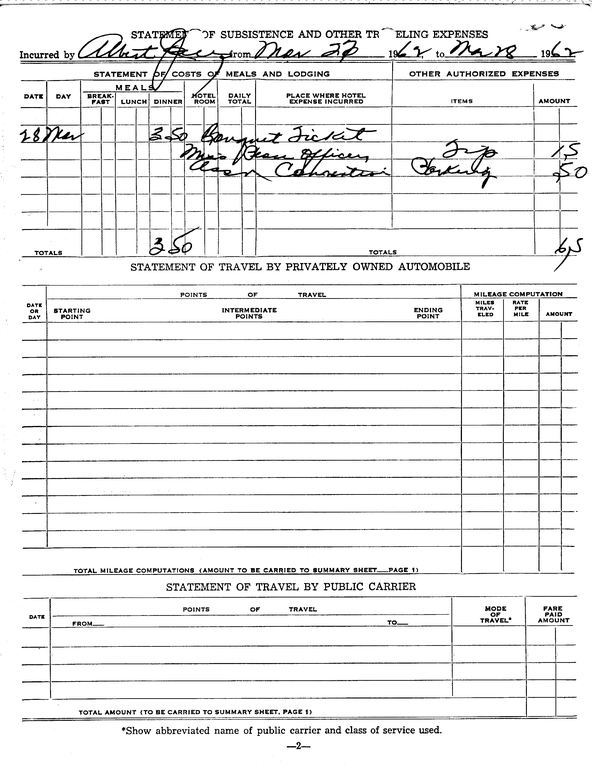 STATEMENT OF SUBSISTENCE AND OTHER TR ELING EXPENSES
Incurred by Albert from Mar 27 1962 to Mar 28 1962
STATEMENT OF COSTS OF MEALS AND LODGING OTHER AUTHORIZED EXPENSES
MEALS
DATE DAY BREAK-FAST LUNCH DINNER HOTEL ROOM DAILY TOTAL PLACE WHERE HOTEL EXPENSE INCURRED ITEMS AMOUNT
28 Mar 3 50 Banquet Ticket
Officers Tip 15
Assn Convention Parking 50
TOTALS 3 50 TOTALS 65
STATEMENT OF TRAVEL BY PRIVATELY OWNED AUTOMOBILE
POINTS OF TRAVEL MILEAGE COMPUTATION
DATE OR DAY STARTING POINT INTERMEDIATE POINTS ENDING POINT MILES TRAV-ELED RATE PER MILE AMOUNT
TOTAL MILEAGE COMPUTATIONS (AMOUNT TO BE CARRIED TO SUMMARY SHEET—PAGE 1)
STATEMENT OF TRAVEL BY PUBLIC CARRIER
POINTS OF TRAVEL
DATE FROM— TO— MODE OF TRAVEL* FARE PAID AMOUNT
TOTAL AMOUNT (TO BE CARRIED TO SUMMARY SHEET, PAGE 1)
*Show abbreviated name of public carrier and class of service used.
—2—